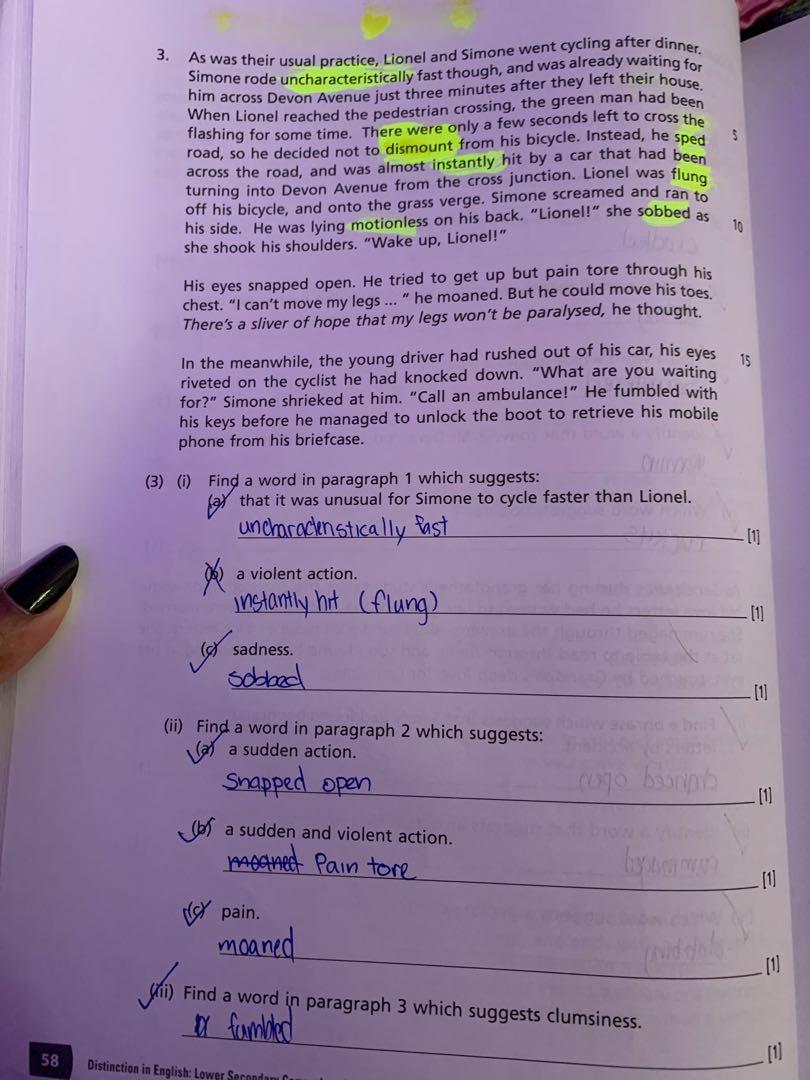 3. As was their usual practice, Lionel and Simone went cycling after dinner.
Simone rode uncharacteristically fast though, and was already waiting for
him across Devon Avenue just three minutes after they left their house.
When Lionel reached the pedestrian crossing, the green man had been
flashing for some time. There were only a few seconds left to cross the 5
road, so he decided not to dismount from his bicycle. Instead, he sped
across the road, and was almost instantly hit by a car that had been
turning into Devon Avenue from the cross junction. Lionel was flung
off his bicycle, and onto the grass verge. Simone screamed and ran to
his side. He was lying motionless on his back. “Lionel!” she sobbed as 10
she shook his shoulders. “Wake up, Lionel!”
His eyes snapped open. He tried to get up but pain tore through his
chest. “I can’t move my legs ... ” he moaned. But he could move his toes.
There’s a sliver of hope that my legs won’t be paralysed, he thought.
In the meanwhile, the young driver had rushed out of his car, his eyes 15
riveted on the cyclist he had knocked down. “What are you waiting
for?” Simone shrieked at him. “Call an ambulance!” He fumbled with
his keys before he managed to unlock the boot to retrieve his mobile
phone from his briefcase.
(3) (i) Find a word in paragraph 1 which suggests:
(a) that it was unusual for Simone to cycle faster than Lionel.
uncharacteristically fast [1]
(b) a violent action.
instantly hit (flung) [1]
(c) sadness.
sobbed [1]
(ii) Find a word in paragraph 2 which suggests:
(a) a sudden action.
Snapped open [1]
(b) a sudden and violent action.
moaned Pain tore [1]
(c) pain.
moaned [1]
(iii) Find a word in paragraph 3 which suggests clumsiness.
fumbled [1]
58 Distinction in English: Lower Secondary